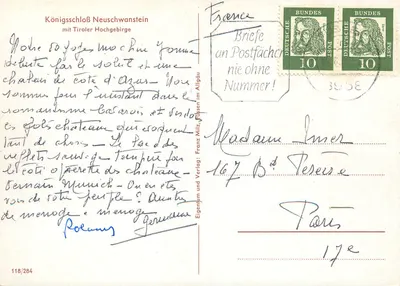 Königsschloß Neuschwanstein
mit Tiroler Hochgebirge
Notre voyage
débute par le soleil et une
chaleur de côte d'Azur. Nous
sommes pour l'instant dans le
romantisme bavarois et
ces jolis châteaux qui évoquent
tant de choses. Le lac des
sauvage tempéré par
le côté opérette des châteaux.
Demain Munich. Où en êtes
vous de votre
de ménage à ménage
Germaine
118/284
Eigentum und Verlag: Franz Milz, Füssen im Allgäu
France
Briefe
an Postfächer
nie ohne
Nummer!
DEUTSCHE
BUNDES
POST
10
DEUTSCHE
BUNDES
POST
10
Madame
167 Bd Pereire
Paris
17e